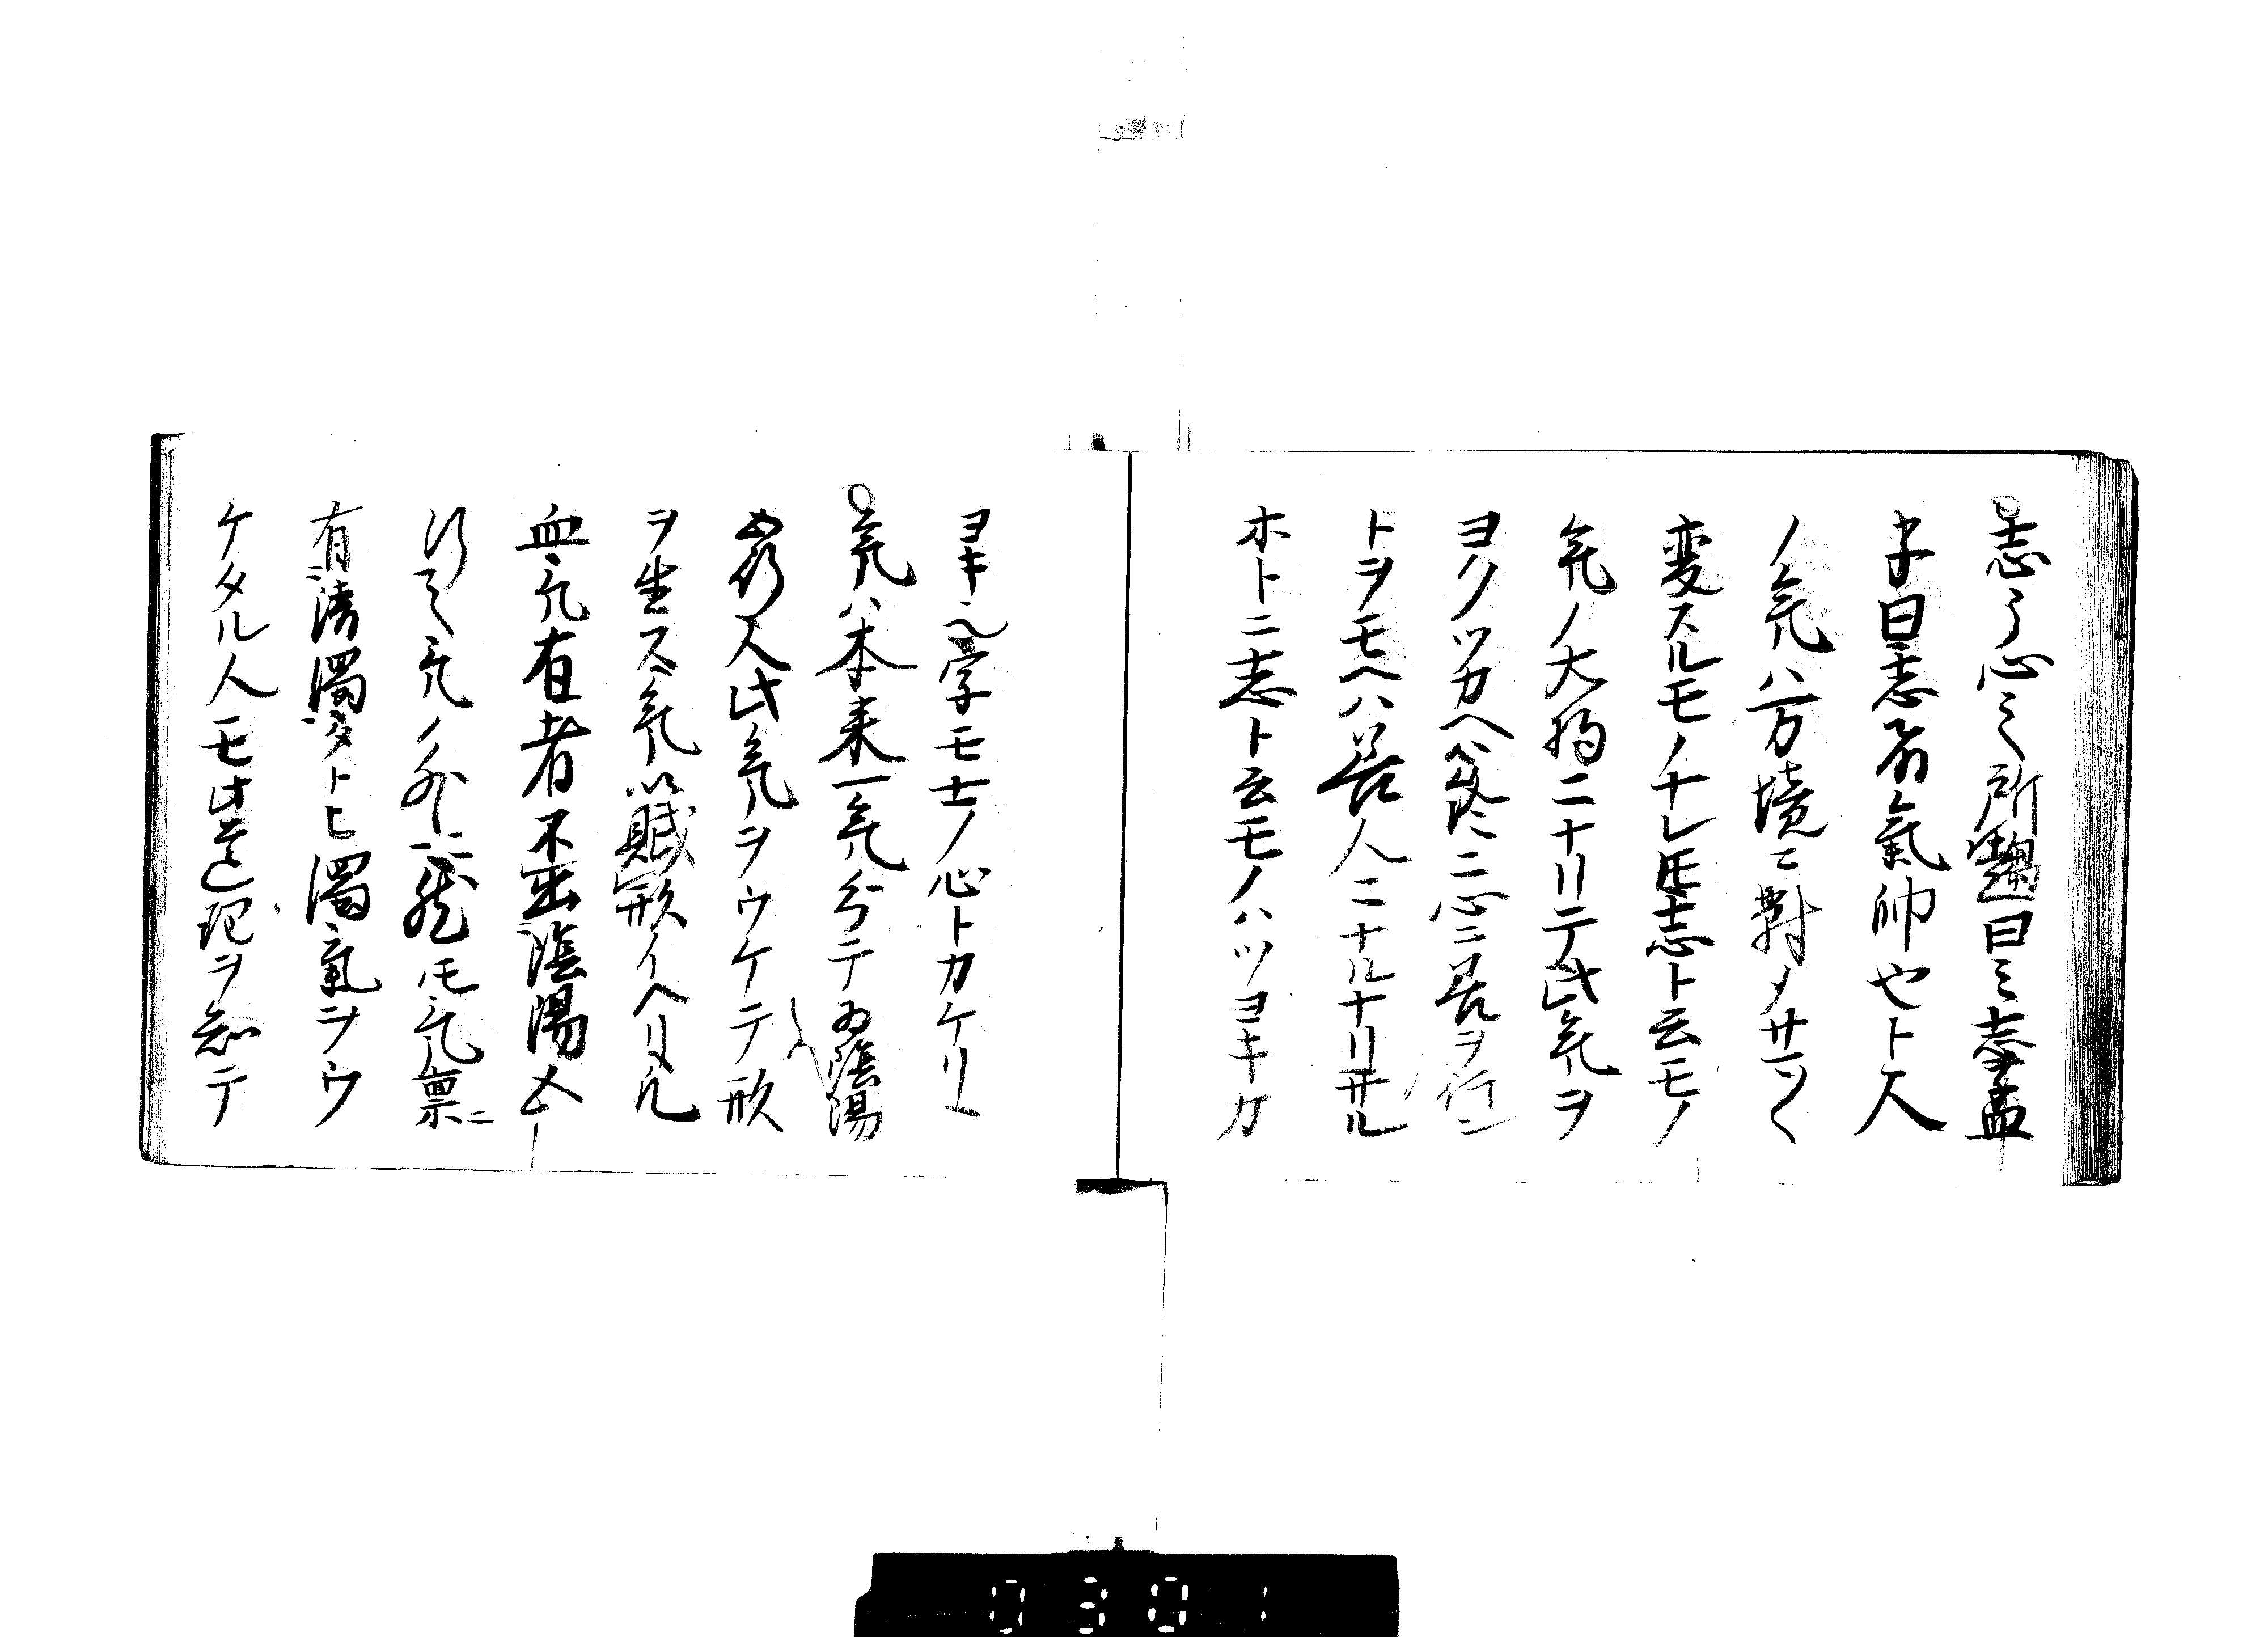 志了心之所趨曰之志孟
子曰志者氣帥也ト人
ノ氣ハ万境ニ對メサマ〱
変スルモノナレ𪜈志ト云モノ
氣ノ大将ニナリテ此氣ヲ
ヨクツカヘハ終ニ心ニ善ヲ行ン
トヲモヘハ善人ニナルナリサル
ホトニ志ト云モノハツヨキカ
ヨキ也字モ士ノ心トカケリ
氣ハ本来一氣分テ為陰陽
五行人此氣ヲウケテ形
ヲ生ス氣以賦形イヘリ凡
血氣有者不出陰陽五
行之氣ノ外ニ然𪜈氣禀ニ
有清濁タトヒ濁氣ヲウ
ケタル人モ此道理ヲ知テ
0301